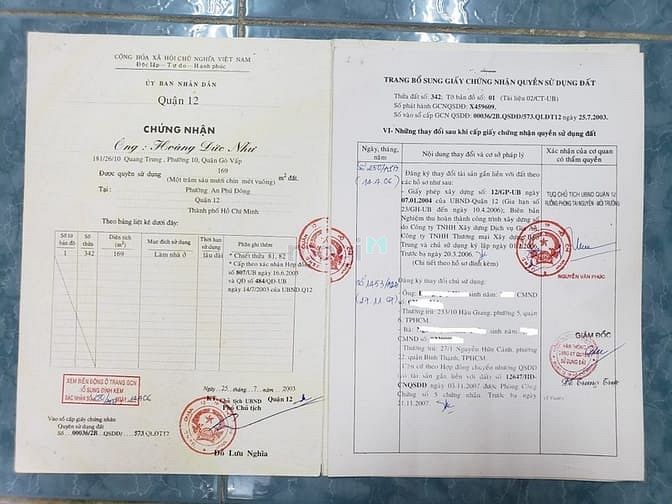 CỘNG HÒA XÃ HỘI CHỦ NGHĨA VIỆT NAM
Độc lập - Tự do - Hạnh phúc
ỦY BAN NHÂN DÂN
Quận 12
CHỨNG NHẬN
Ông : Hoàng Đức Như
181/26/10 Quang Trung, Phường 10, Quận Gò Vấp
Được quyền sử dụng 169 m² đất.
(Một trăm sáu mươi chín mét vuông)
Tại Phường An Phú Đông
Quận 12
Thành phố Hồ Chí Minh
Theo bảng liệt kê dưới đây:
Số tờ bản đồ
Số thửa
Diện tích (m²)
Mục đích sử dụng
Thời hạn sử dụng
Phần ghi thêm
1 342 169 Làm nhà ở lâu dài
* Chiết thửa 81, 82
* Cấp theo xác nhận Hợp đồng
số 807/UB ngày 16.6.2003
và QĐ số 484/QĐ-UB
ngày 14/7/2003 của UBND.Q12
XEM BIẾN ĐỘNG Ở TRANG GCN
BỔ SUNG ĐÍNH KÈM
Ngày 25 tháng 7 năm 2003
KT. Chủ tịch UBND Quận 12
Phó Chủ tịch
Đỗ Lưu Nghĩa
Vào sổ cấp giấy chứng nhận
Quyền sử dụng đất
Số 00036/2B QSDĐ/ 573.QLĐT12
TRANG BỔ SUNG GIẤY CHỨNG NHẬN QUYỀN SỬ DỤNG ĐẤT
Thửa đất số: 342, Tờ bản đồ số: 01 (Tài liệu 02/CT-UB)
Số phát hành GCNQSDĐ: X459609.
Số vào sổ cấp GCN QSDĐ: 00036/2B.QSDĐ/573.QLĐT12 ngày 25.7.2003.
VI- Những thay đổi sau khi cấp giấy chứng nhận quyền sử dụng đất
Ngày, tháng, năm
Nội dung thay đổi và cơ sở pháp lý
Xác nhận của cơ quan có thẩm quyền
Đăng ký thay đổi tài sản gắn liền với đất theo
các hồ sơ như sau:
- Giấy phép xây dựng số: 12/GP-UB ngày
07.01.2004 của UBND-Quận 12 (Gia hạn số
23/GH-UB đến ngày 10.4.2006); Biên bản
Nghiệm thu hoàn thành công trình xây dựng
Công ty TNHH Xây dựng Dịch vụ
Công ty TNHH Thương mại Xây dựng
Trung và chủ sử dụng ký lập ngày
Trước bạ ngày 20.3.2006.
(Chi tiết theo hồ sơ đính kèm)
TUQ CHỦ TỊCH UBND QUẬN 12
TRƯỞNG PHÒNG TÀI NGUYÊN - MÔI TRƯỜNG
NGUYỄN VĂN PHÚC
Đăng ký thay đổi chủ sử dụng:
Ông: sinh năm: CMND
số
Thường trú: 233/10 Hậu Giang, phường 5, quận
6, TPHCM.
Bà: sinh năm
CMND số
Thường trú: 27/1 Nguyễn Hữu Cảnh, phường
22, quận Bình Thạnh, TPHCM.
Căn cứ theo Hợp đồng chuyển nhượng QSDĐ
và tài sản gắn liền với đất số 12647/HĐ-
CNQSDĐ ngày 03.11.2007 được Phòng Công
Chứng số 5 chứng nhận. Trước bạ ngày
21.11.2007.
GIÁM ĐỐC